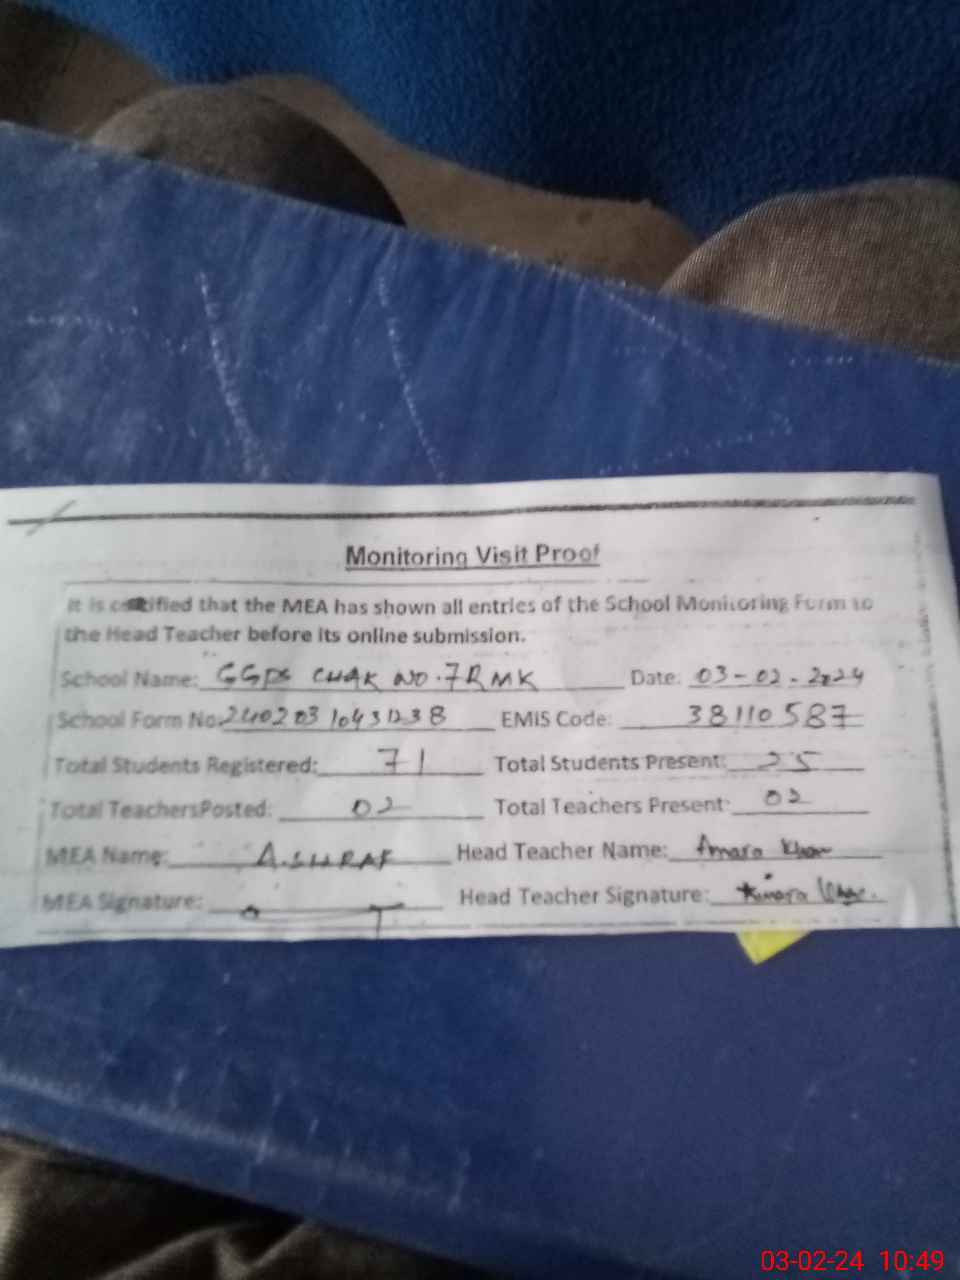 Monitoring Visit Proof
It is certified that the MEA has shown all entries of the School Monitoring Form to
the Head Teacher before its online submission.
School Name: GGPS CHAK NO.7RMK Date: 03-02-2024
School Form No. 24020310431238 EMIS Code: 38110587
Total Students Registered: 71 Total Students Present: 25
Total TeachersPosted: 02 Total Teachers Present: 02
MEA Name: A.SHRAF Head Teacher Name: Amara Khan
MEA Signature: Head Teacher Signature: Amara Khan.
03-02-24 10:49